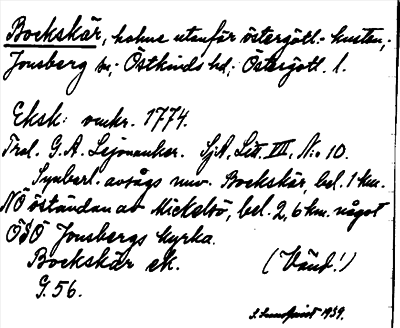 Bockskär, holme utanför östergötl. kusten,
Jonsberg sn, Östkinds hd, Östergötl. l.
Eksk: omkr. 1774.
Trol. G. A. Lejonanker. SjA, Lit. III, No 10.
Synbarl. avsågs nuv. Bockskär, bel. 1 km.
NÖ östandan av Mickelsö, bel. 2,6 km. något
ÖSÖ Jonsbergs kyrka.
Bockskär ek. (Vänd!)
G. 56.
S. Sundquist 1939.